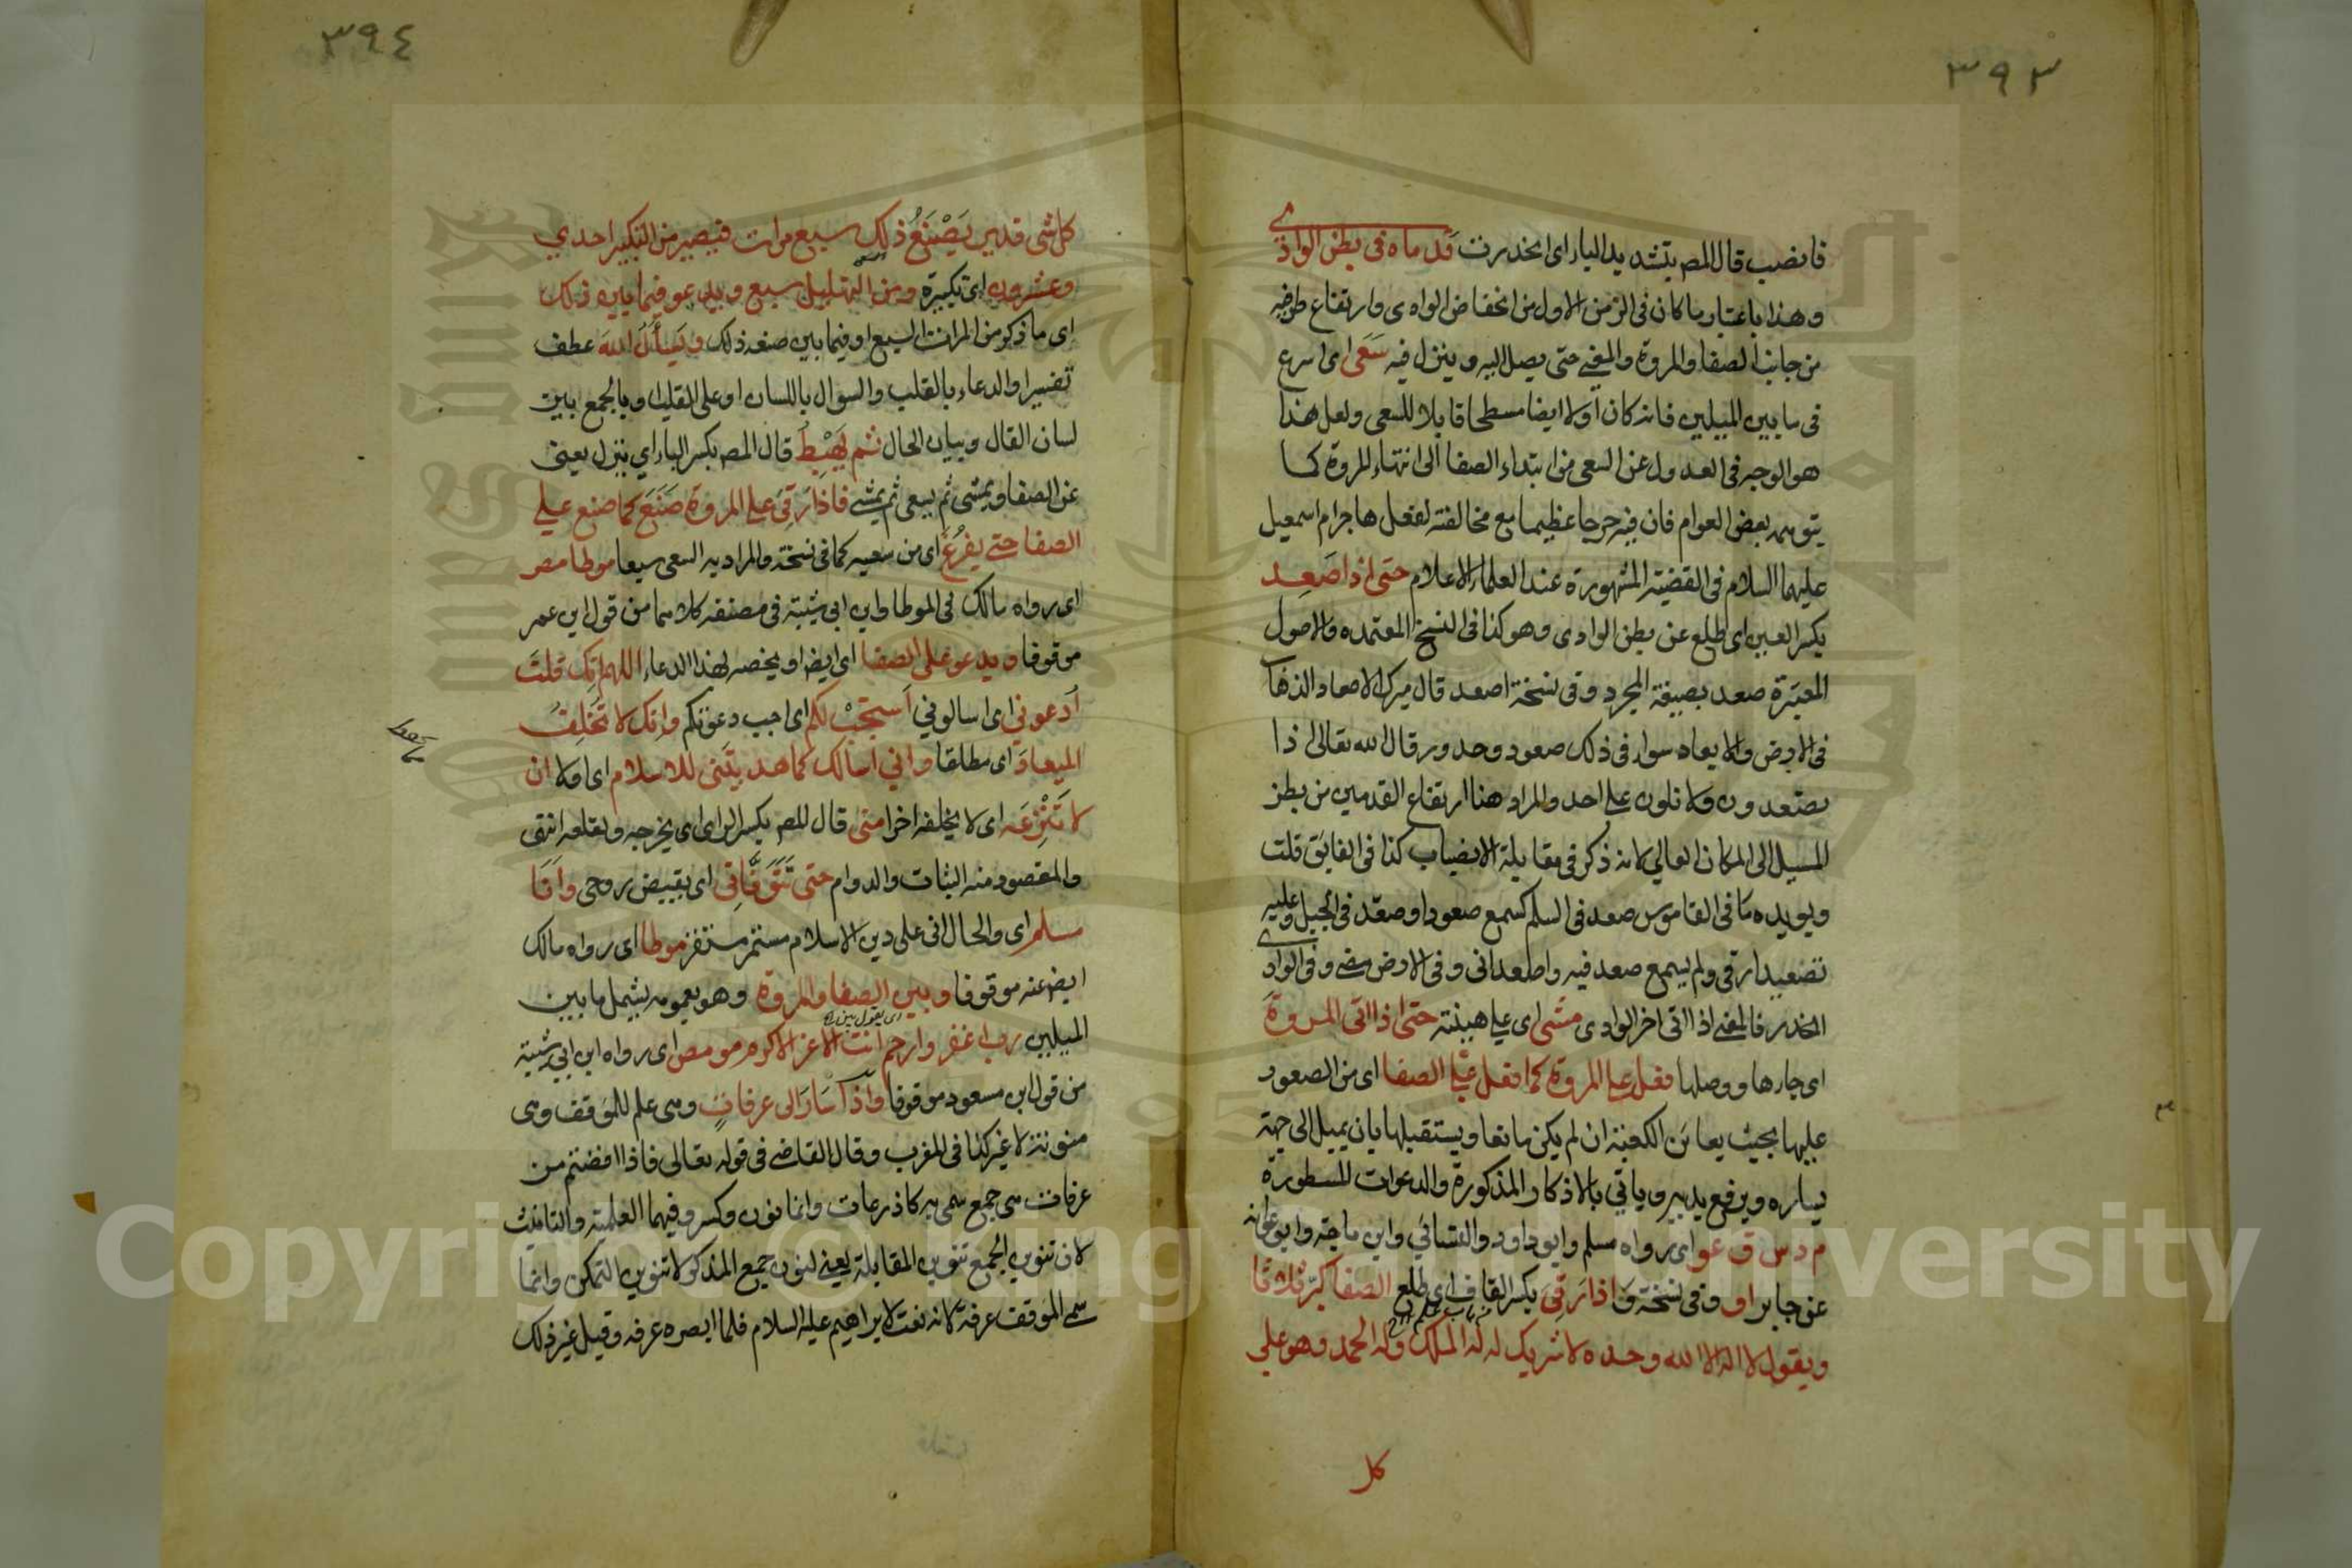 ٣٩٣
فانصب قال المص بتشديد الباء اى انحدرت قدماه فى بطن الوادي
وهذا باعتبار ما كان فى الزمن الاول من انخفاض الوادى وارتفاع طرفيه
من جانب الصفا والمروة والمعنى حتى يصل اليه وينزل فيه سَعَى اى اسرع
فى ما بين الميلين فانه كان اولا ايضا مسطحا قابلا للسعى ولعل هذا
هو الوجه فى العدول عن السعى من ابتداء الصفا الى انتهاء المروة كما
يتوهمه بعض العوام فان فيه حرجا عظيما مع مخالفته لفعل هاجر ام اسمعيل
عليهما السلام فى القضية المشهورة عند العلماء الاعلام حتى اذا صَعِد
بكسر العين اى طلع عن بطن الوادى وهو كذا فى النسخ المعتمده والاصول
المعتبرة صعد بصيغة المجرد وفى نسخة اصعد قال ميرك الاصعاد الذهاب
فى الارض والابعاد سواء فى ذلك صعود وحدور قال الله تعالى اذ
تصعدون ولا تلون على احد والمراد هنا ارتفاع القدمين من بطن
المسيل الى المكان العالي لانه ذكر فى مقابلة الانصباب كذا فى الفايق قلت
ويويده ما فى القاموس صعد فى السلم كسمع صعودا وصعّد فى الجبل وعليه
تصعيدا رقى ولم يسمع صعد فيه واصعد اتى وفى الارض مضى وفى الوادي
انحدر فالمعنى اذا اتى اخر الوادى مشى اى على هينته حتى اذا اتى المروةَ
اى جاءها ووصلها فعل على المروة كما فعل على الصفا اى من الصعود
عليها بحيث يعاين الكعبة ان لم يكن مانعا ويستقبلها بان يميل الى جهة
يساره ويرفع يديه وياتي بالاذكار المذكورة والدعوات المسطورة
م د س ق عو اى رواه مسلم وابوداود والنسائي وابن ماجة وابوعوانه
عن جابر او وفى نسخة وَ اذا رَقِىَ بكسر القاف اى طلع الصفا كبّر ثلاثا
ويقول لا اله الا الله وحده لا شريك له له الملك وله الحمد وهو على
كل
٣٩٤
كل شى قدير يَصْنَعُ ذلك سبع مرات فيصير من التكبير احدي
وعشرون اى تكبيرة ومن التهليل سبع ويدعو فيما بين ذلك
اى ما ذكر من المرات السبع او فيما بين صنعه ذلك ويَسأَلُ اللهَ عطف
تفسير او الدعاء بالقلب والسوال باللسان او على القلب او بالجمع بين
لسان القال وبيان الحال ثم يَهْبِطُ قال المص بكسر الباء اي ينزل يعنى
عن الصفا ويمشى ثم يسعى ثم يمشى فاذا رَقِىَ على المروة صَنَعَ كما صنع على
الصفا حتى يفرُغَ اى من سعيه كما فى نسخة والمراد به السعى سبعا موطا مص
اى رواه مالك فى الموطا وابن ابى شيبة فى مصنفه كلاهما من قول ابن عمر
موقوفا ويدعو على الصفا اى ايضا او يخصه بهذا الدعاء اللهم انك قلتَ
اُدعونى اى اسالوني اَستجبْ لكم اى اجب دعوتكم وانك لا تُخلِفُ
الميعادَ اى مطلقا واني اسالك كما هديتَنى للاسلام اى اولا ان
لا تَنْزِعَه اى لا يخلفه اخرا منى قال المص بكسر الزاى اى يخرجه ويقلعه انتهى
والمقصود منه الثبات والدوام حتى تَتَوَفَّانِى اى بقبض روحى وانا
مسلم اى والحال انى على دين الاسلام مستمر مستقر موطا اى رواه مالك
ايضا عنه موقوفا وبين الصفا والمروة وهو بعمومه يشمل ما بين
الميلين رب اغفر وارحم انت الاعز الاكرم مو مص اى رواه ابن ابي شيبة
من قول ابن مسعود موقوفا واذا سَارَ الى عرفاتٍ وهى علم للموقف وهى
منونة لا غير كذا فى المغرب وقال القاضى فى قوله تعالى فاذا افضتم من
عرفات هى جمع سمى به كاذرعات وانما نون وكسر وفيهما العلمية والتانيث
لان تنوين الجمع تنوين المقابلة يعنى لنون جمع المذكر لا تنوين التمكن وانما
سمى الموقف عرفة لانه نعت لابراهيم عليه السلام فلما ابصره عرفه وقيل غير ذلك
Copyright © King Saud University